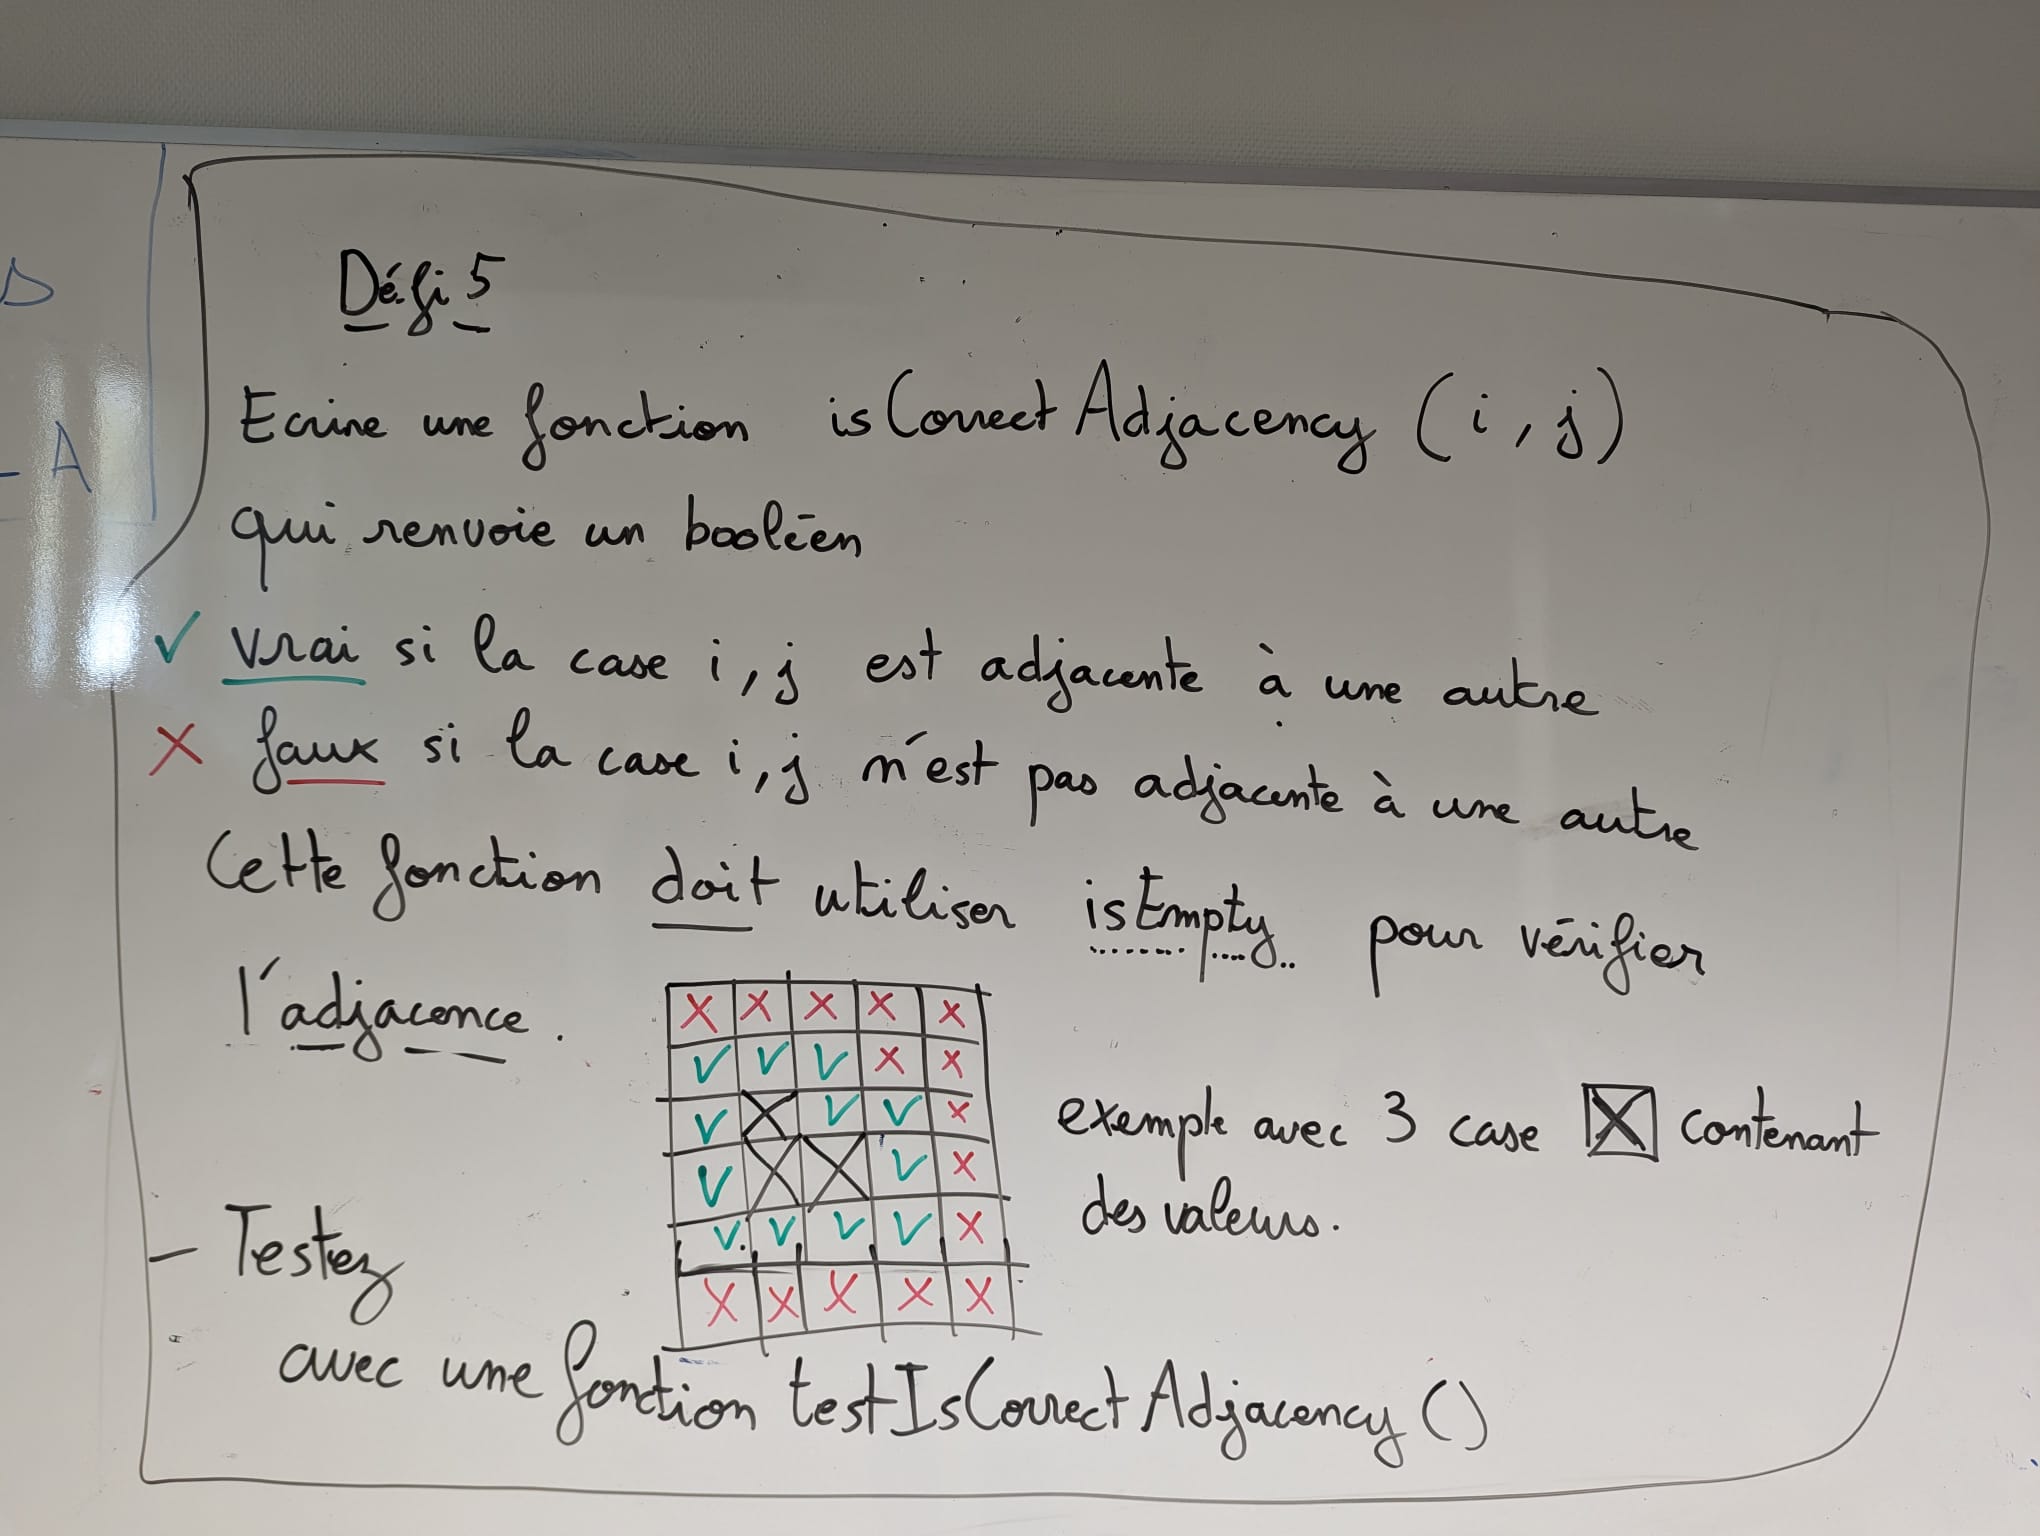 Défi 5
Ecrire une fonction isCorrectAdjacency (i, j)
qui renvoie un booléen
✓ vrai si la case i, j est adjacente à une autre
X faux si la case i, j n'est pas adjacente à une autre
Cette fonction doit utiliser isEmpty pour vérifier
l'adjacence.
X X X X X
✓ ✓ ✓ X X
✓ X ✓ ✓ X
✓ X X ✓ X
✓ ✓ ✓ ✓ X
X X X X X
exemple avec 3 case X contenant
des valeurs.
- Testez
avec une fonction testIsCorrectAdjacency ()
A